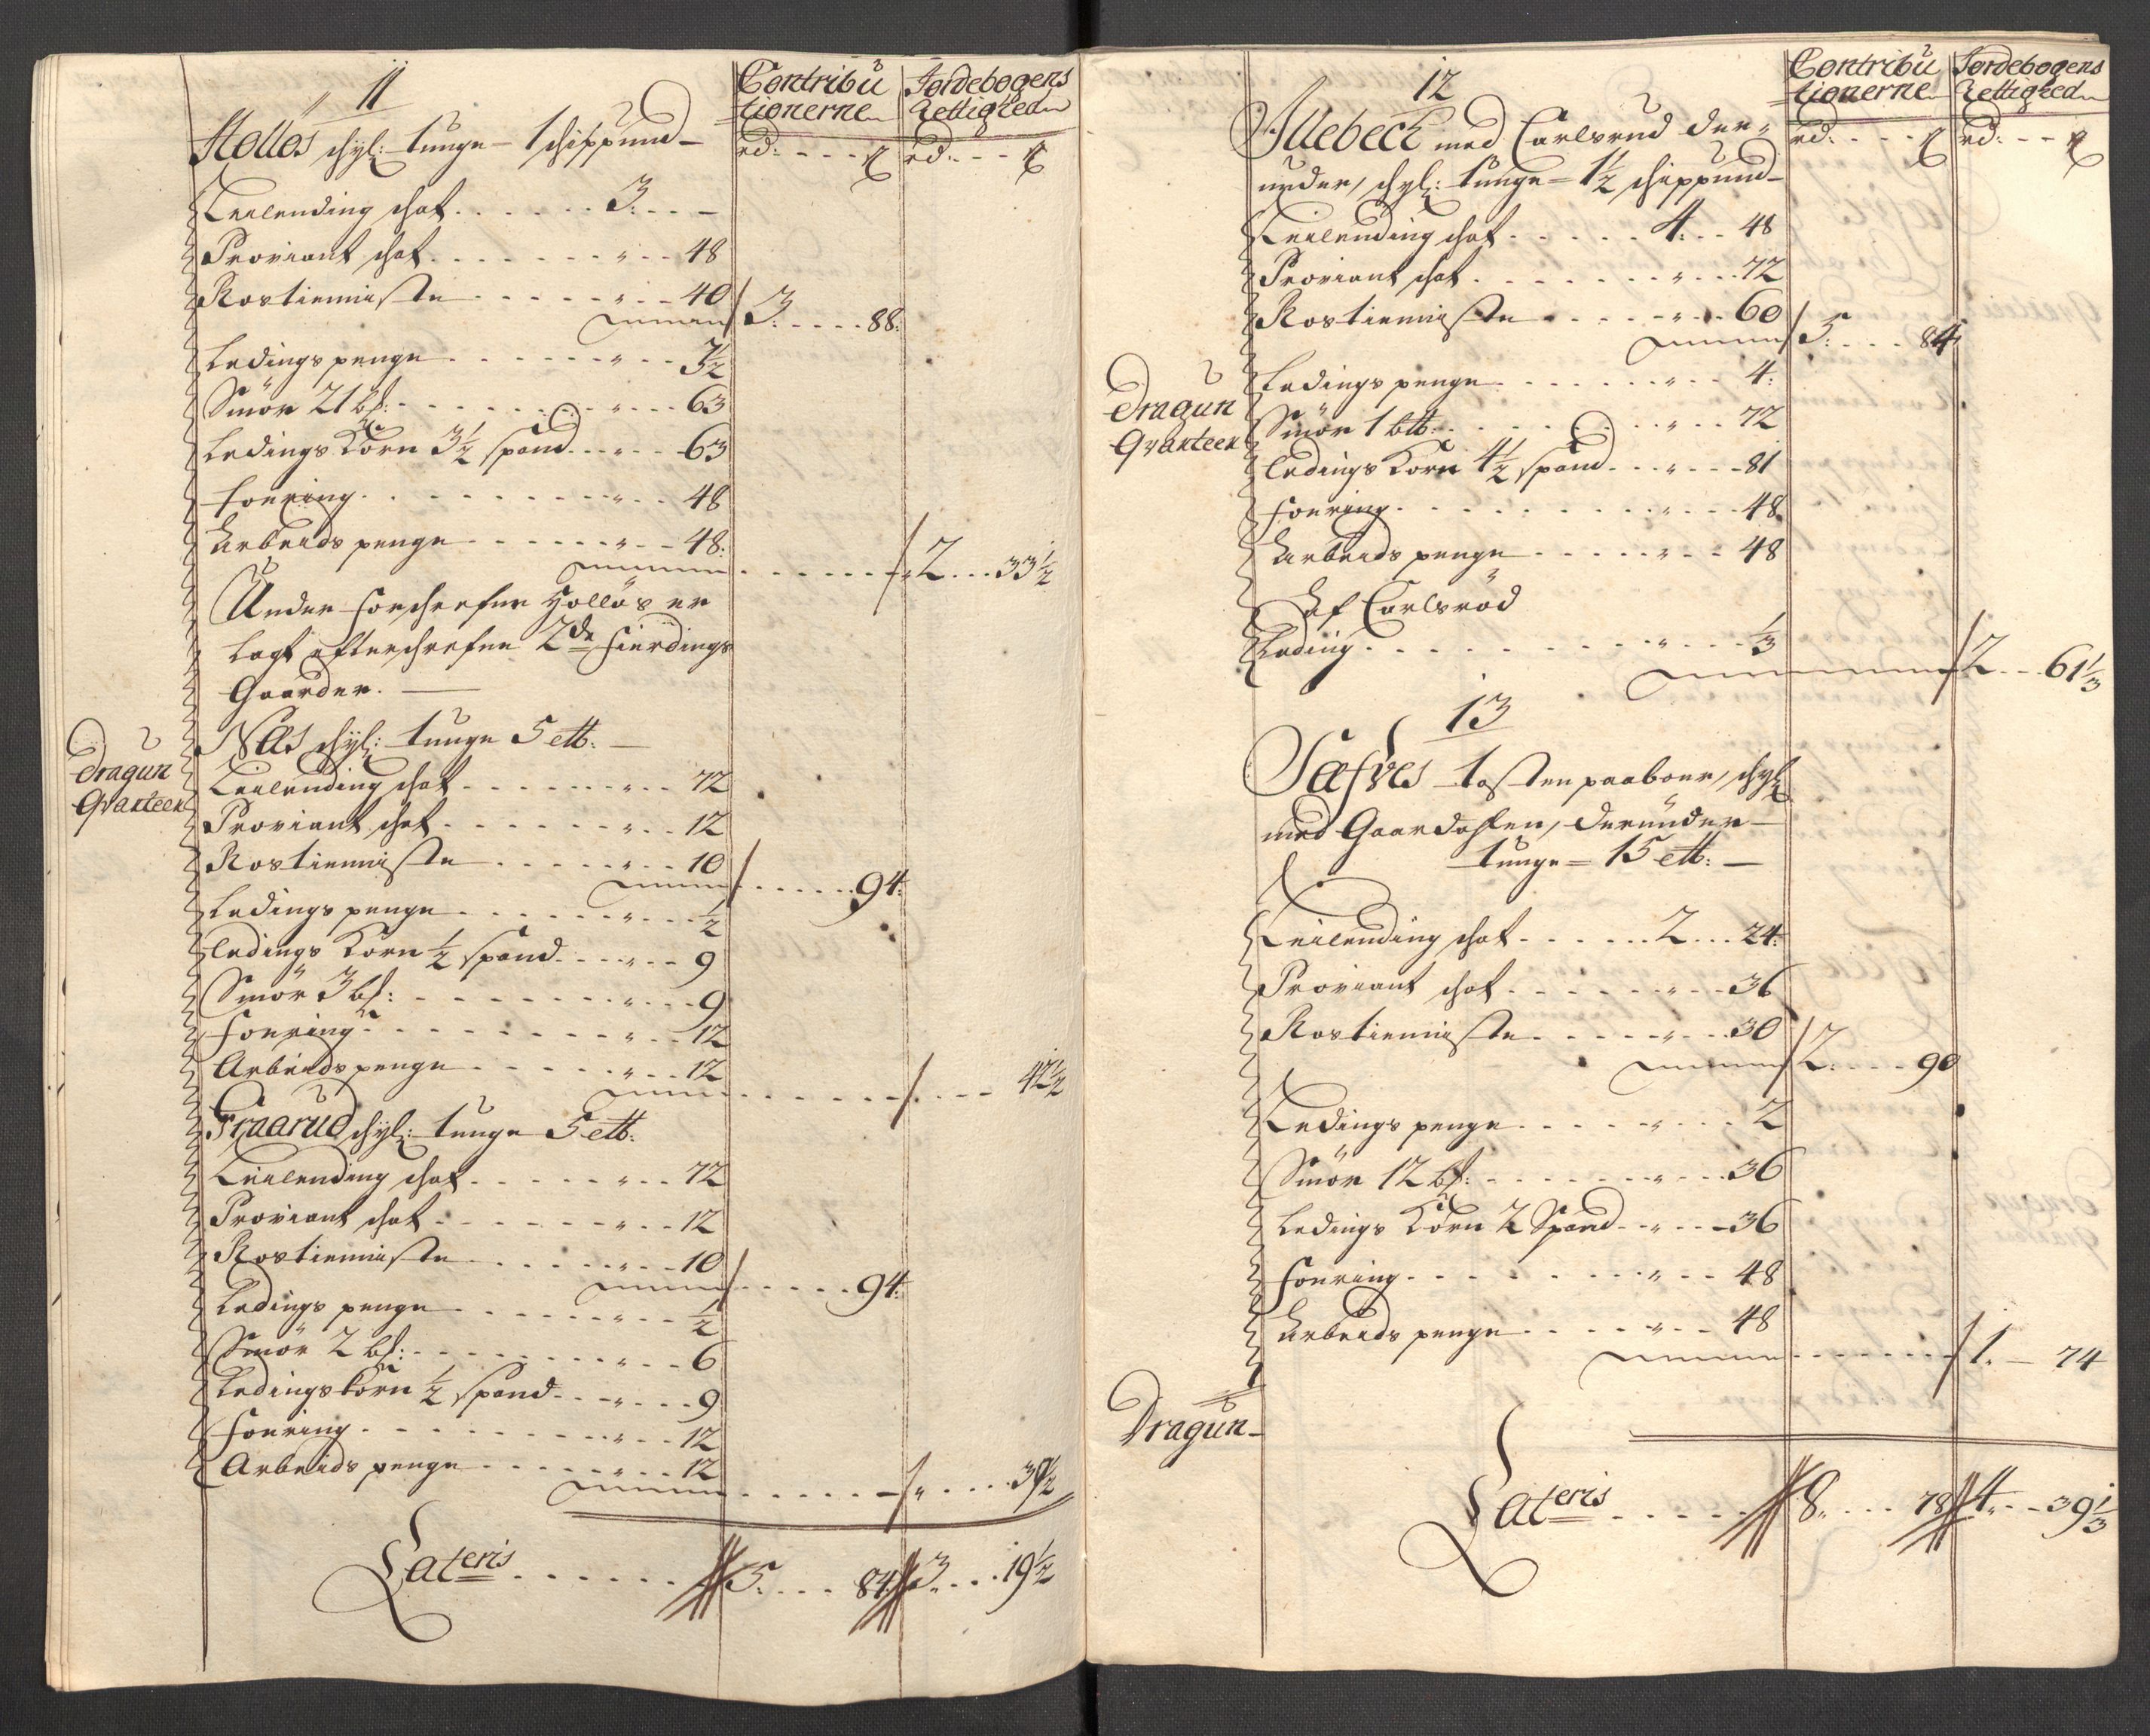 11
Contribu
tionerne
Jordebogens
Rettighed
rd: - - -
rd: - - -
Holløs schyl: tunge - 1 schippund -
Leilending schat . . . . . . 3: - - -
Proviant schat . . . . . . . „ - - 48
Rostienniste . . . . . . . „ - - 40 / 3: - - - - 88:
Ledings penge . . . . . . . „ - - 3½
Smör 21 bs: . . . . . . . „ - - 63
Ledings Korn 3½ spand . . . „ - - 63
foering . . . . . . . . . „ - - 48
Arbeids penge . . . . . . „ - - 48:
/ 2 . . . 33½
Under forschrefne Holløs er
lagt efterschrefne 2de fierdings
Gaarder. —
Dragun
Qvarteer
Næs schyl: tunge 5 ett: —
Leilending schat . . . . . . „ . . 72
Proviant schat . . . . . . „ . . 12
Rostienniste . . . . . . „ . . 10
/ . . . . . 94:
Ledings penge . . . . . . „ . . ½
Ledings Korn ½ spand . . . „ . . 9
Smör 3 bs: . . . . . . . „ . . 9
foering . . . . . . . . „ . . 12
Arbeidspenge . . . . . . „ . . 12
/ . . . . 42½
Fraarud schyl: tunge 5 ett:
Leilending schat . . . . . . „ . . 72
Proviant schat . . . . . . „ . . 12
Rostienniste . . . . . . „ . . 10
/ . . . . . 94:
Ledings penge . . . . . . „ . . ½
Smör 2 bs: . . . . . . . „ . . 6
Ledingskorn ½ spand . . . „ . . 9
foering . . . . . . . . „ . . 12
Arbeids penge . . . . . . „ . . 12
/ „ . . . . 39½
Lateris . . . . . . 5: . . . 84 3 . . . 19½
12
Contribu
tionerne
Jordebogens
Rettighed
rd: - - -
rd: - - -
Allebech med Carlsrud der-
under, schyl: tunge - 1½ schippund -
Leilending schat . . . . . 4: . . 48
Proviant schat . . . . . . . „ . . . 72
Rostienniste . . . . . . „ . . 60
/ 5: . . . 84
Dragun
Qvarteer
Ledings penge . . . . . . . „ . . 4:
Smör 1 btt: . . . . . . . „ . . 72
Ledings Korn 4½ spand . . . „ . . . 81
foering . . . . . . . . . „ . . . 48
Arbeids penge . . . . . . „ . . 48
Af Carlsröd
Leding . . . . . . . . . „ . . . ⅓
/ 2 . . . 61⅓
13
Sæfves tosten paaboer, schyl
med Gaardafsen, derunder -
tunge = 15 ett: —
Leilending schat . . . . . . 2 . . . 24:
Proviant schat . . . . . . . „ . . 36
Rostienniste . . . . . . „ . . . 30
/ 2: . . . . 90
Ledings penge . . . . . . „ . . . 2
Smör 12 bs: . . . . . . . „ . . . 36
Ledings Korn 2 Spand . . „ . . . 36
foering . . . . . . . . „ . . 48
Arbeids penge . . . . . „ . . 48
/ 1. — 74
Dragun-
Lateris . . . . . 8. . . . 78 4. . . 39⅓